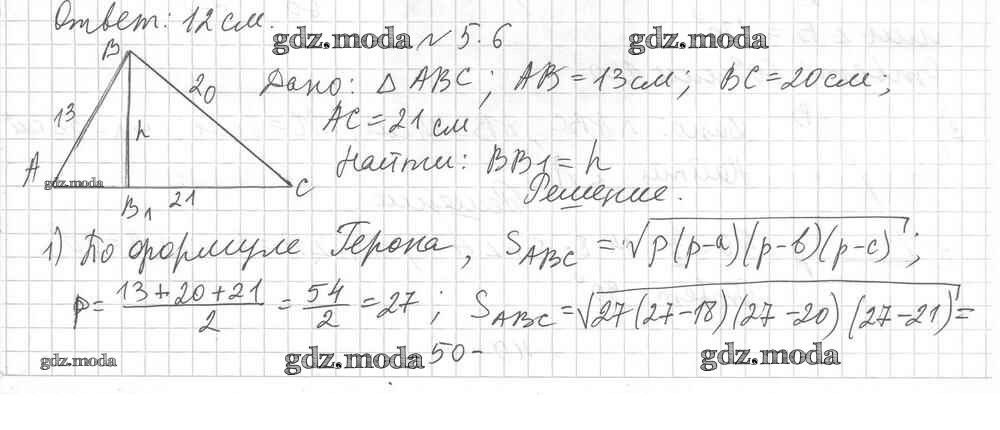 Ответ: 12 см.
gdz.moda № 5.6 gdz.moda
Дано: △ ABC; AB = 13 см; BC = 20 см;
AC = 21 см
Найти: BB1 = h
Решение.
B
20
13
h
A
gdz.moda
C
B1
21
1) По формуле Герона, S_ABC = √p(p-a)(p-b)(p-c);
p = (13+20+21)/2 = 54/2 = 27; S_ABC = √27(27-18)(27-20)(27-21) =
gdz.moda gdz.moda 50- gdz.moda